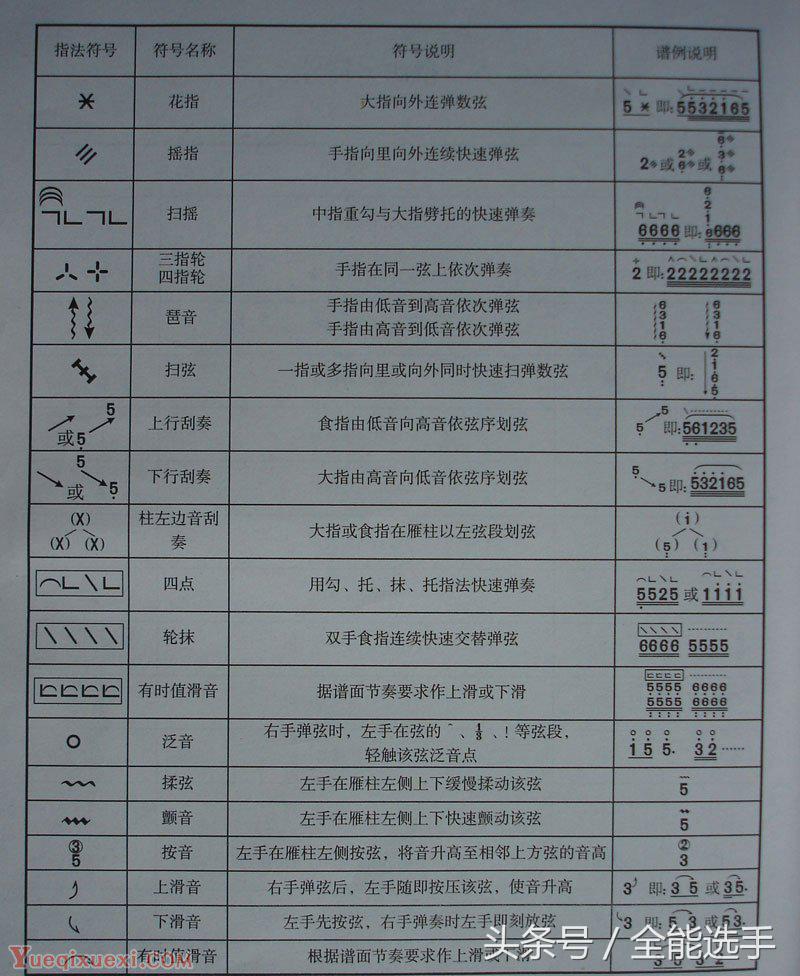 指法符号 符号名称 符号说明 谱例说明
花指 大指向外连弹数弦 5 即: 5532165
摇指 手指向里向外连续快速弹弦 2 或 或
扫摇 中指重勾与大指劈托的快速弹奏 6666 即: 6666
三指轮
四指轮 手指在同一弦上依次弹奏 2 即: 22222222
琶音 手指由低音到高音依次弹弦
手指由高音到低音依次弹弦
扫弦 一指或多指向里或向外同时快速扫弹数弦 5 即:
或 5 5 上行刮奏 食指由低音向高音依弦序划弦 5 5 即: 561235
或 5 5 下行刮奏 大指由高音向低音依弦序划弦 5 5 即: 532165
(X)
(X) (X) 柱左边音刮
奏 大指或食指在雁柱以左弦段划弦 (i)
(5) (1)
四点 用勾、托、抹、托指法快速弹奏 5525 或 1111
轮抹 双手食指连续快速交替弹弦 6666 5555
有时值滑音 据谱面节奏要求作上滑或下滑 5555 6666
5555 6666
泛音 右手弹弦时，左手在弦的 、⅓ 、! 等弦段，
轻触该弦泛音点 1 5 5· 3 2 ······
揉弦 左手在雁柱左侧上下缓慢揉动该弦 5
颤音 左手在雁柱左侧上下快速颤动该弦 5
③
5 按音 左手在雁柱左侧按弦，将音升高至相邻上方弦的音高 ②
3
上滑音 右手弹弦后，左手随即按压该弦，使音升高 3 即: 3 5 或 35·
下滑音 左手先按弦，右手弹奏时左手即刻放弦 3 即: 5 3 或 53·
有时值滑音 根据谱面节奏要求作上滑或下滑
头条号 / 全能选手
Yueqixuexi.com